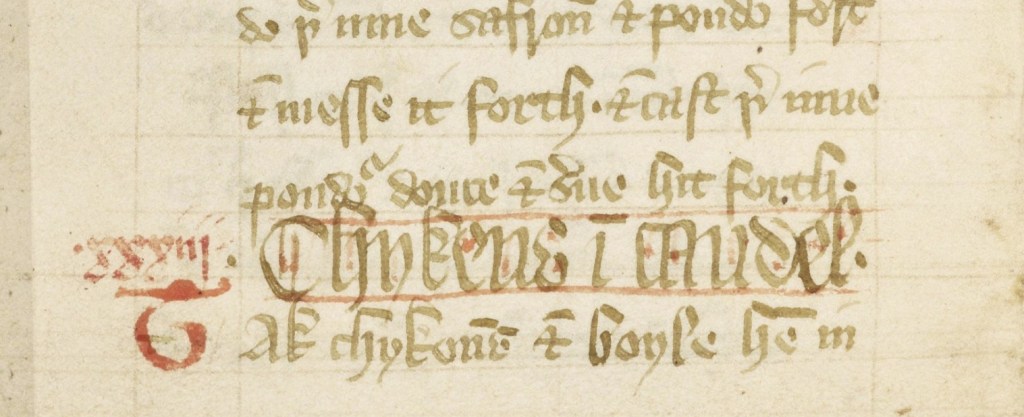 do þ̉ inne safron̄ & pondo fort
& messe it forth. & cast þ̉ inne
poudoꝰ douce & s̉ue hit forth.
Chykens ī caudel.
Tak chykonē & boyle hē in